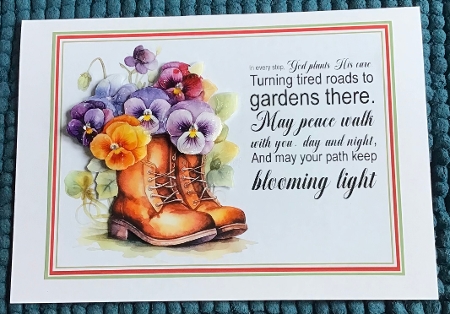 In every step, God plants His care
Turning tired roads to
gardens there.
May peace walk
with you, day and night,
And may your path keep
blooming light